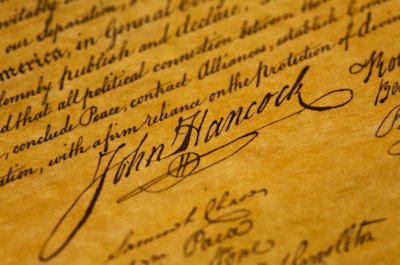 vitably
our separation,
America, in General Con
lemnly publish and declare, 
d that all political connection between the
, conclude Peace, contract Alliances, establish Com
ation, with a firm reliance on the protection of divin
John Hancock
Ro
Be
Samuel Chase
Paca
tone
rrollton